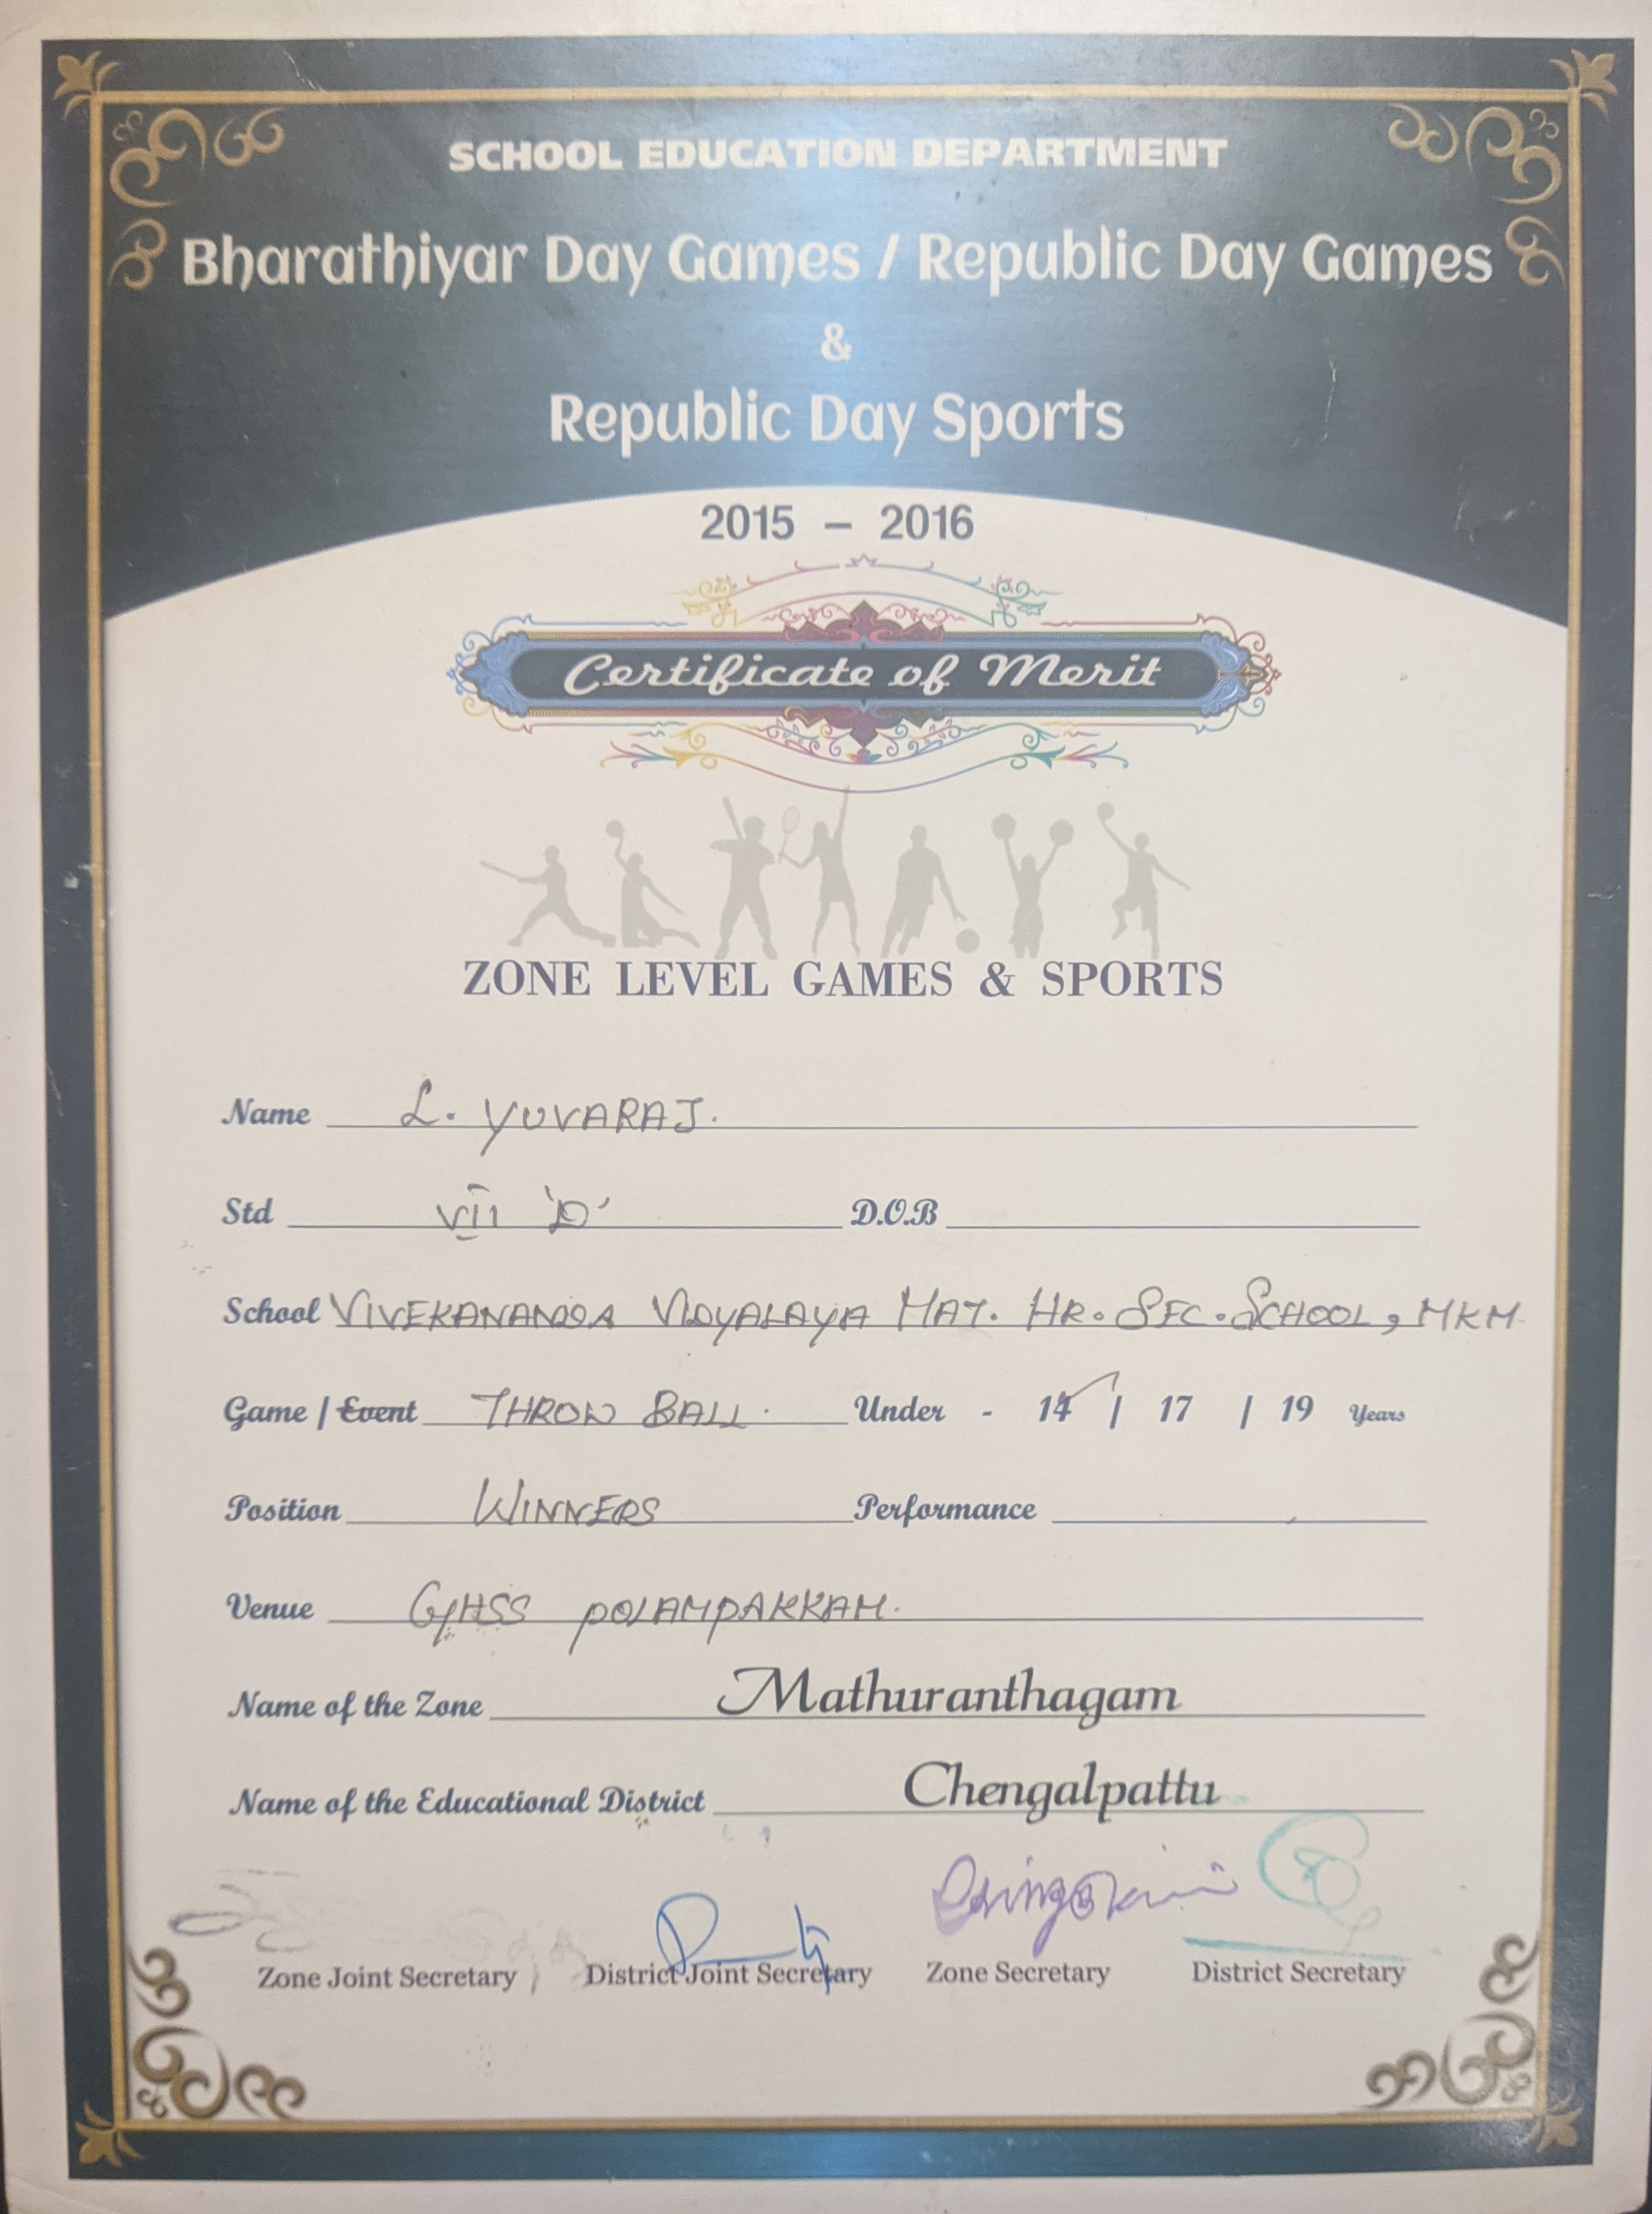 SCHOOL EDUCATION DEPARTMENT
Bharathiyar Day Games / Republic Day Games
&
Republic Day Sports
2015 – 2016
Certificate of Merit
ZONE LEVEL GAMES & SPORTS
Name L. YUVARAJ.
Std VII 'D' D.O.B
School VIVEKANANDA VIDYALAYA MAT. HR. SEC. SCHOOL, MKM
Game / Event THROW BALL. Under - 14 / 17 / 19 Years
Position WINNERS Performance
Venue GHSS POLAMPAKKAM.
Name of the Zone Mathuranthagam
Name of the Educational District Chengalpattu
Zone Joint Secretary District Joint Secretary Zone Secretary District Secretary